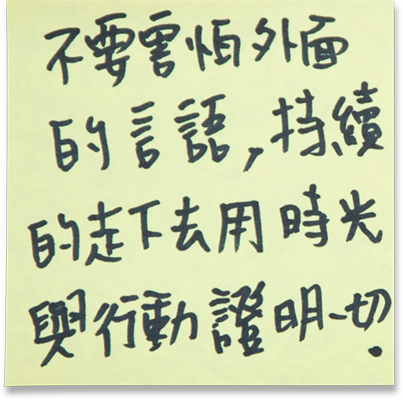 不要害怕外面
的言語,持續
的走下去用時光
與行動證明一切.